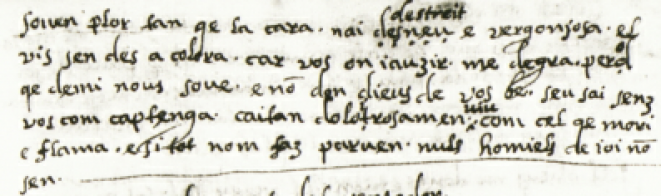 destreit
souen plor tan qe la cara. nai desneu e vergonjosa. el
vis sen des a colora. car vos on iauzir. me degra. perd
qe demi nous soue. e nō don dieus de vos be. seu sai senz
vos com captenga. caitan dolorosamen. viu com cel qe mori
e flama. e si tot nom faz paruen. nuls homiels de ioi nō
sen.